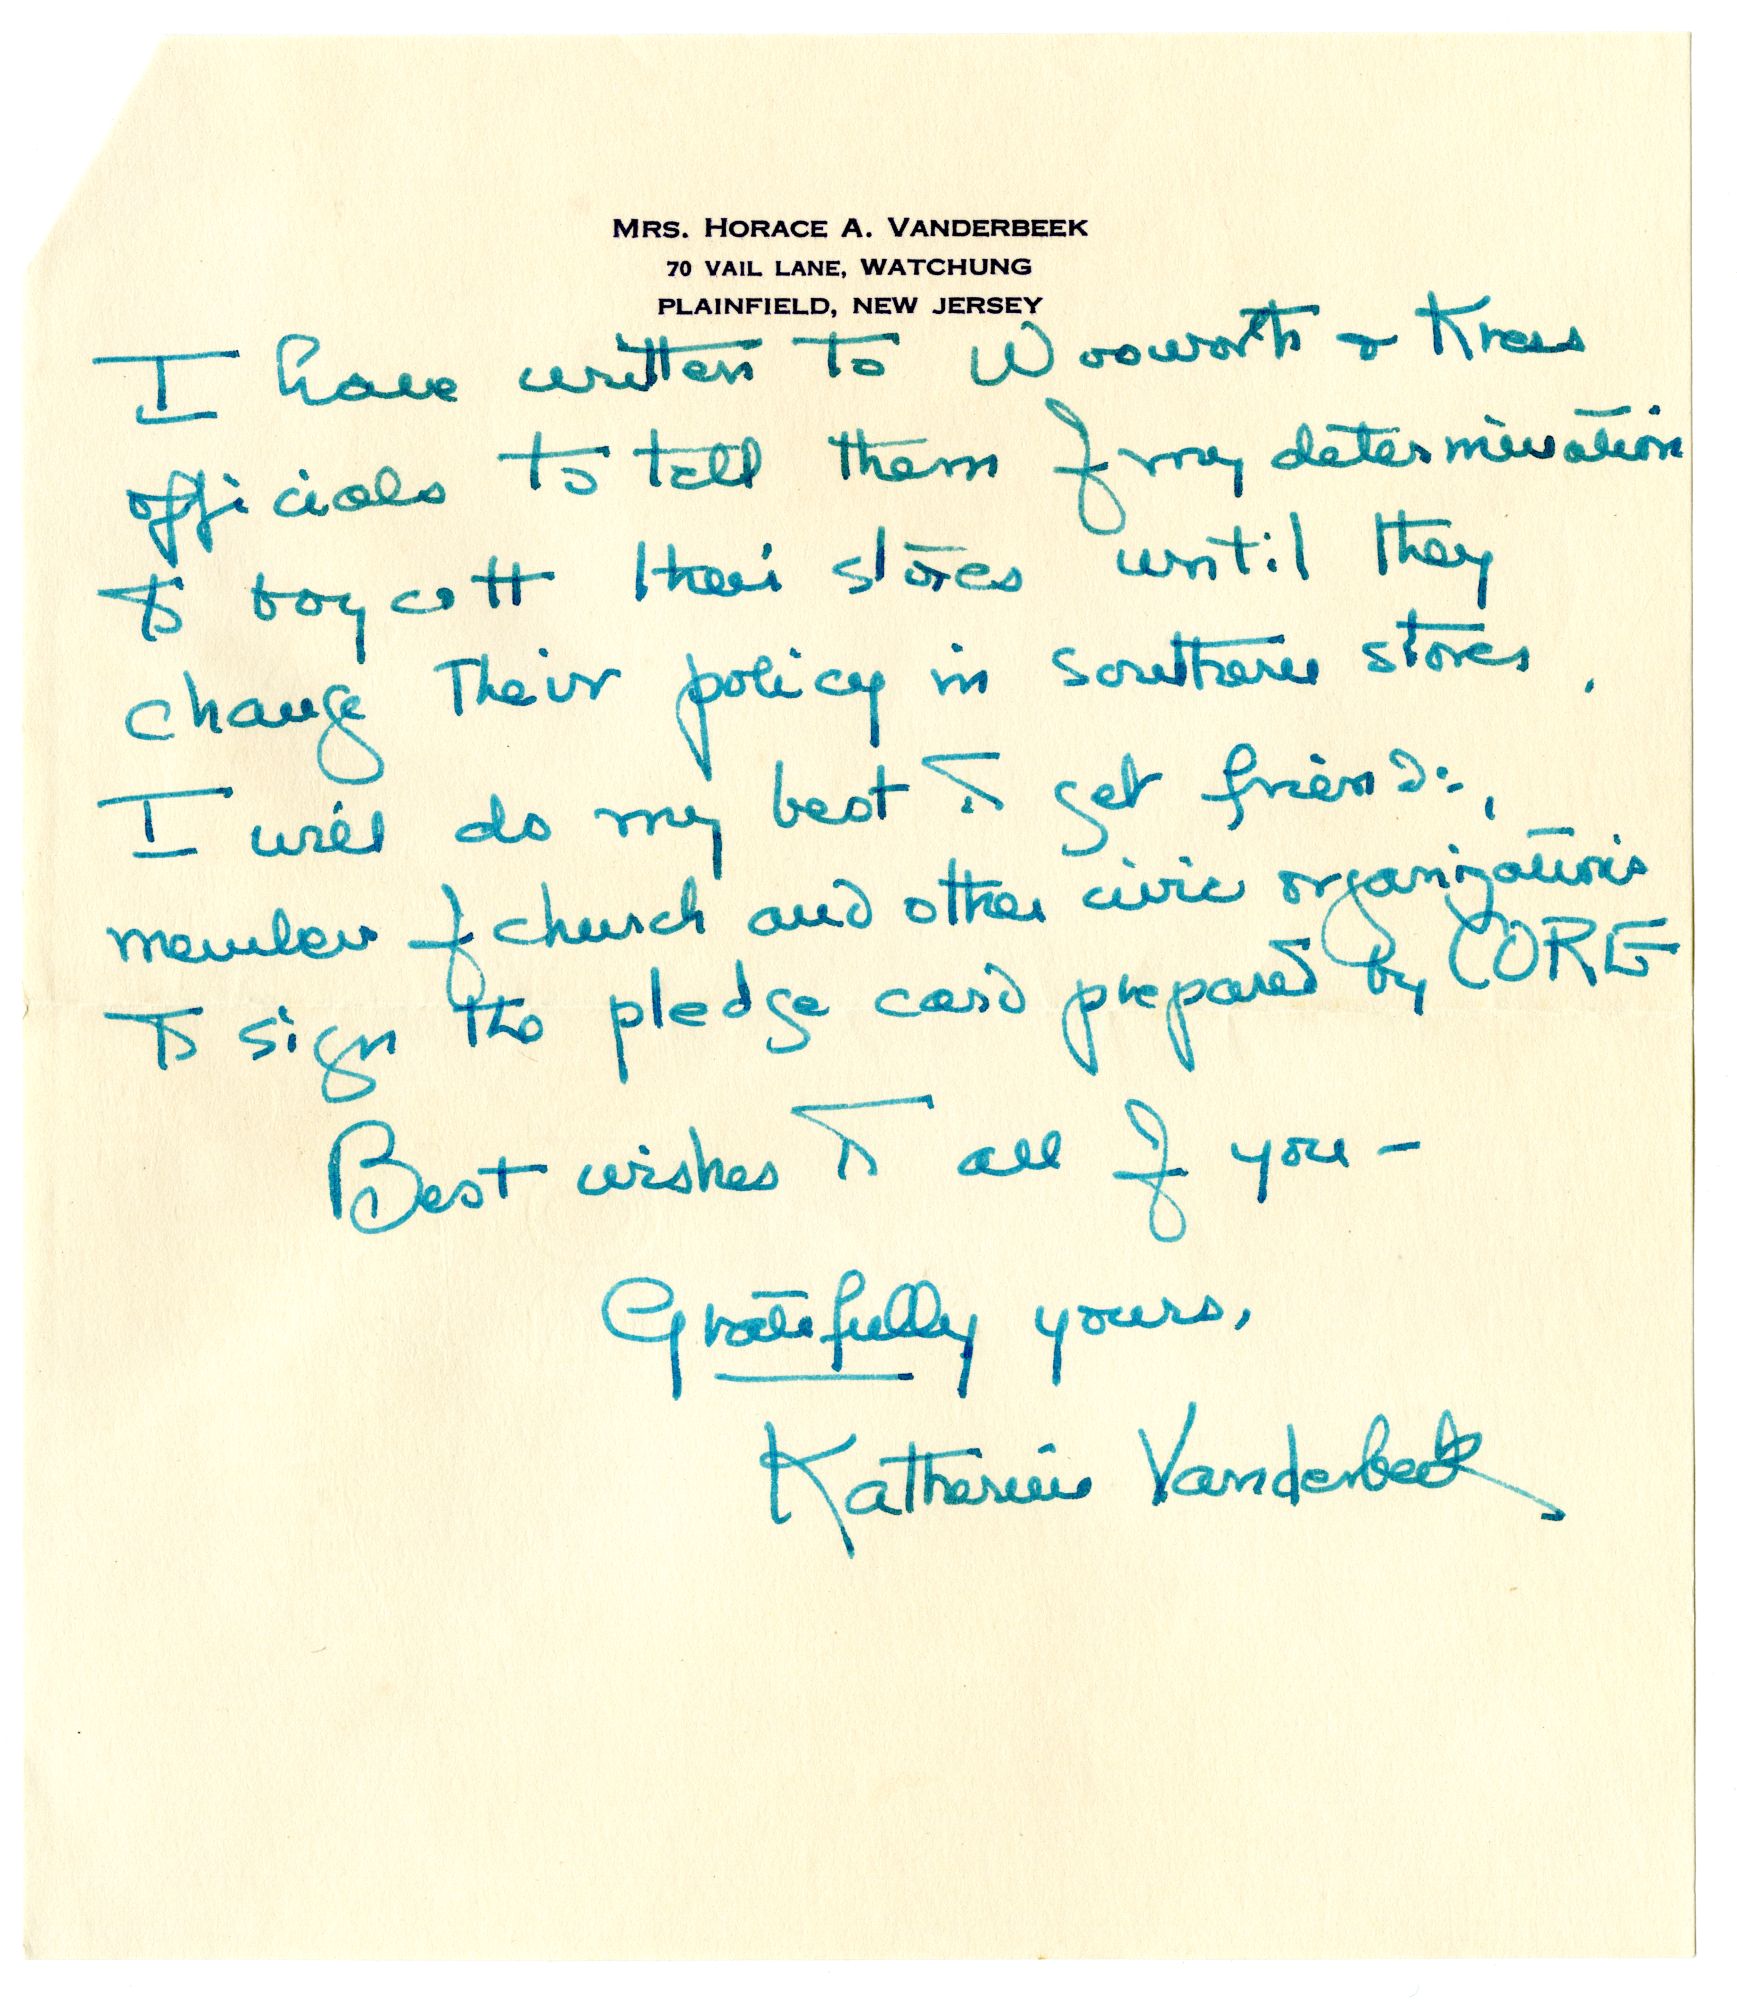 MRS. HORACE A. VANDERBEEK
70 VAIL LANE, WATCHUNG
PLAINFIELD, NEW JERSEY
I have written to Wooworth & Kress
officials to tell them of my determination
to boycott their stores until they
change their policy in southern stores.
I will do my best to get friends,
members of church and other civic organizations
to sign the pledge card prepared by CORE
Best wishes to all of you -
Gratefully yours,
Katherine Vanderbeek